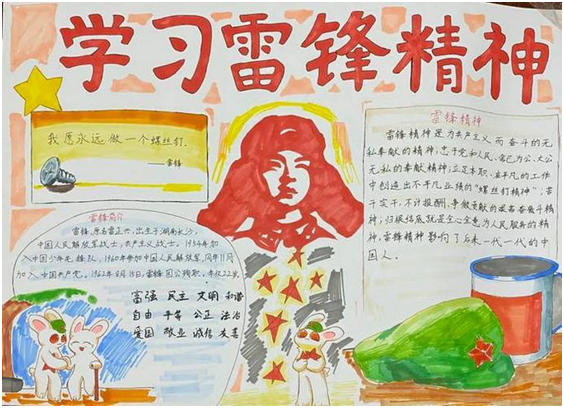 学习雷锋精神
我愿永远做一个螺丝钉.
——雷锋
雷锋简介
雷锋,原名雷正兴,出生于湖南长沙,
中国人民解放军战士,共产主义战士,1954年加
入中国少年先锋队,1960年参加中国人民解放军,同年11月
加入中国共产党,1962年8月15日,雷锋因公殉职,年仅22岁
富强 民主 文明 和谐
自由 平等 公正 法治
爱国 敬业 诚信 友善
雷锋精神
雷锋精神是为共产主义而奋斗的无
私奉献的精神;忠于党和人民、舍己为公、大公
无私的奉献精神;立足本职、在平凡的工作
中创造出不平凡业绩的"螺丝钉精神";苦
干实干、不计报酬、争做贡献的艰苦奋斗精
神;归根结底就是全心全意为人民服务的精
神,雷锋精神影响了后来一代一代的中
国人.